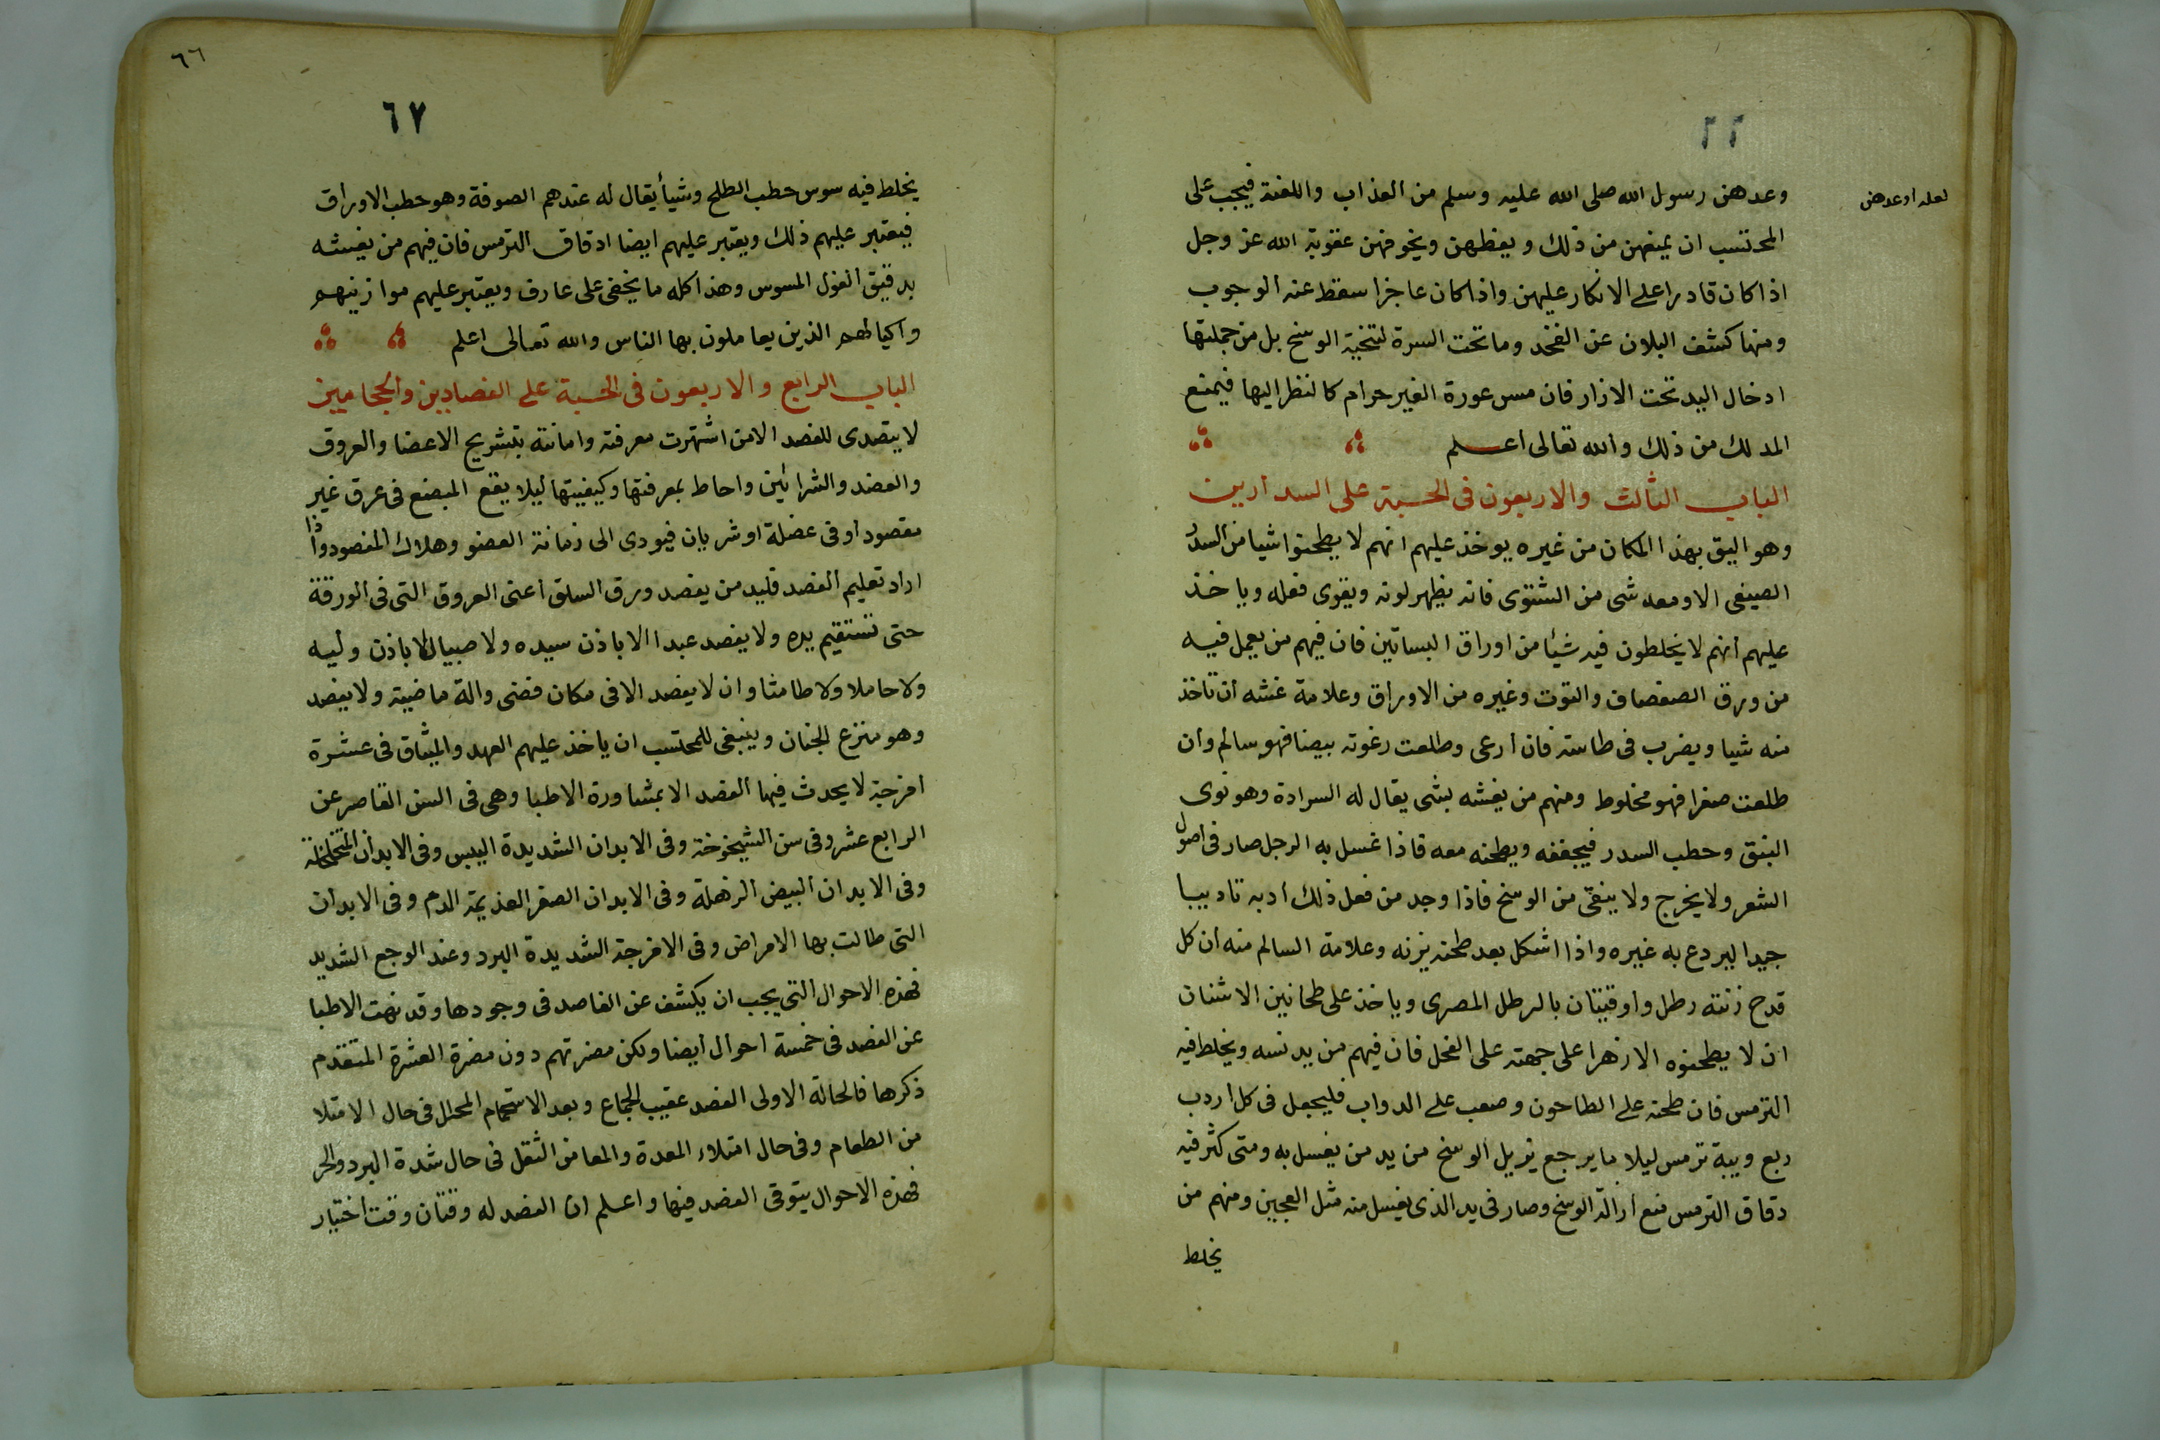 ٦٦
وعدهن رسول الله صلى الله عليه وسلم من العذاب واللعنة فيجب على
لعله اوعدهن
المحتسب ان يمنعهن من ذلك ويعظهن ويخوفهن عقوبة الله عز وجل
اذا كان قادرا على الانكار عليهن واذا كان عاجزا سقط عنه الوجوب
ومنها كشف البلان عن الفخد وما تحت السرة لتنخية الوسخ بل من جملتها
ادخال اليد تحت الازار فان مس عورة الغير حرام كالنظر اليها فيمنع
المدلك من ذلك والله تعالى اعلم
الباب الثالث والاربعون فى الحسبة على السدارين
وهو اليق بهذا المكان من غيره يوخذ عليهم انهم لا يطحنوا شيا من السدر
الصيفى الا ومعه شى من الشتوى فانه يظهر لونه ويقوى فعله وياخذ
عليهم انهم لا يخلطون فيه شيئا من اوراق البساتين فان فيهم من يعمل فيه
من ورق الصفصاف والتوت وغيره من الاوراق وعلامة غشه ان تاخذ
منه شيا ويضرب فى طاسة فان ارعى وطلعت رغوته بيضا فهو سالم وان
طلعت صفرا فهو مخلوط ومنهم من يغشه بشى يقال له السرادة وهو نوى
النبق وحطب السدر فيجففه ويطحنه معه فاذا غسل به الرجل صار فى اصول
الشعر ولا يخرج ولا ينقى من الوسخ فاذا وجد من فعل ذلك ادبه تاديبا
جيدا ليردع به غيره واذا اشكل بعد طحنه يزنه وعلامة السالم منه ان كل
قدح زنته رطل واوقيتان بالرطل المصرى وياخذ على طحانين الاشنان
ان لا يطحنوه الا زهرا على جهته على الفحل فان فيهم من يدنسه ويخلط فيه
الترمس فان طحنه على الطاحون وصعب على الدواب فليجعل فى كل اردب
ربع ويبة ترمس ليلا ما يرجع يزيل الوسخ من يد من يغسل به ومتى كثر فيه
دقاق الترمس منع ازالة الوسخ وصار فى يد الذى يغسل منه مثل العجين ومنهم من
يخلط
٦٦
٦٧
يخلط فيه سوس حطب الطلح وشيأ يقال له عندهم الصوفة وهو حطب الاوراق
فيعتبر عليهم ذلك ويعتبر عليهم ايضا ادقاق الترمس فان فيهم من يغشه
بدقيق الفول المسوس وهذا كله ما يخفى على عارف ويعتبر عليهم موازينهم
واكيالهم الذين يعاملون بها الناس والله تعالى اعلم
الباب الرابع والاربعون فى الحسبة على الفصادين والحجامين
لا يتصدى للفصد الا من اشتهرت معرفته وامانته بتشريح الاعضا والعروق
والعضد والشرائين واحاط بمعرفتها وكيفيتها ليلا يقع المبضع فى عرق غير
مقصود او فى عضلة او شريان فيودى الى زمانة العضو وهلاك المفصود واذا
اراد تعليم الفصد فليدمن يفصد ورق السلق اعنى العروق التى فى الورقة
حتى تستقيم يده ولا يفصد عبدا الا باذن سيده ولا صبيا الا باذن وليه
ولا حاملا ولا طامثا وان لا يفصد الا فى مكان فضى والة ماضية ولا يفصد
وهو منزع الجنان وينبغى للمحتسب ان ياخذ عليهم العهد والميثاق فى عشرة
امزجة لا يحدث فيها الفصد الا بمشاورة الاطبا وهى فى السن القاصر عن
الرابع عشر وفى سن الشيخوخة وفى الابدان الشديدة اليبس وفى الابدان المتخلخلة
وفى الابدان البيض الرهلة وفى الابدان الصفر العذيمة الدم وفى الابدان
التى طالت بها الامراض وفى الامزجة الشديدة البرد وعند الوجع الشديد
فهذه الاحوال التى يجب ان يكشف عن الفاصد فى وجودها وقد نهت الاطبا
عن الفصد فى خمسة احوال ايضا ولكن مضرتهم دون مضرة العشرة المتقدم
ذكرها فالحالة الاولى الفصد عقيب الجماع وبعد الاستحمام المحلل فى حال الامتلا
من الطعام وفى حال امتلاء المعدة والمعا من الثقل فى حال شدة البرد والحر
فهذه الاحوال يتوقى الفصد فيها واعلم ان الفصد له وقتان وقت اختيار